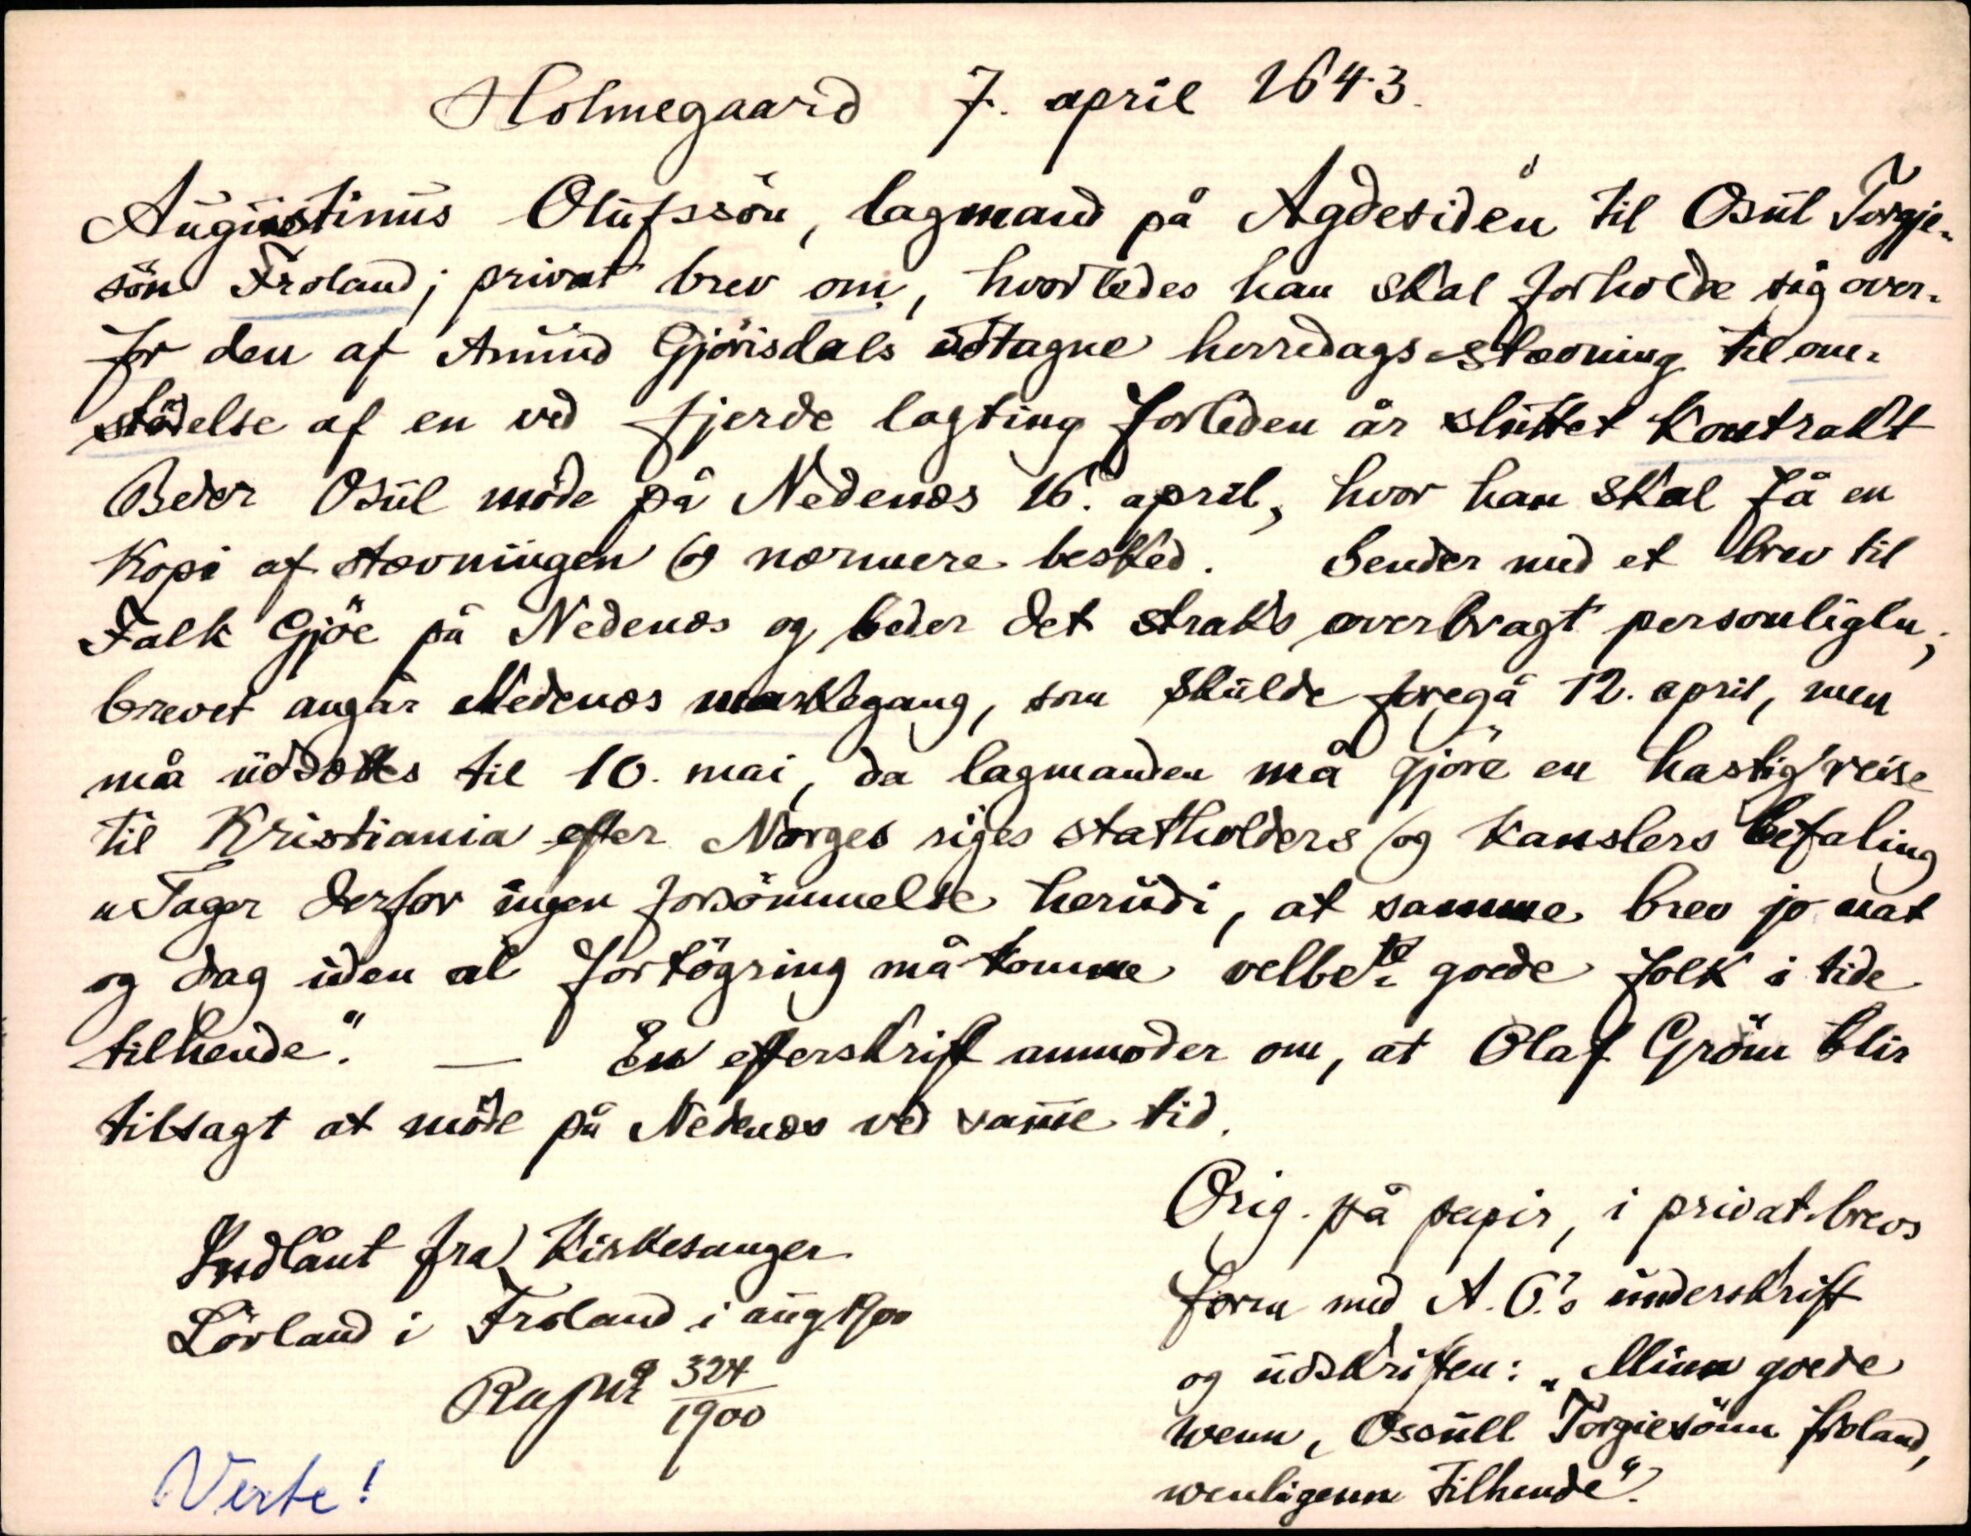 Holmegaard 7. april 1643.
Augustinus Olufssön, lagmand på Agdesiden til Osul Torgje-
sön Froland; privat brev om, hvorledes han skal forholde sig over-
for den af Amund Gjörisdals udtagne herredagsstævning til om-
stödelse af en ved fjerde lagting forleden år sluttet kontrakt
Beder Osul möde på Nedenæs 16. april, hvor han skal få en
kopi af stævningen og nærmere besked. Sender med et brev til
Falk Gjöe på Nedenæs og beder det straks overbragt personligln;
brevet angår Nedenæs markegang, som skulde foregå 12. april, men
må udsættes til 10. mai, da lagmanden må gjöre en hastig reise
til Kristiania efter Norges riges statholders og kanslers befaling
„Tager derfor ingen forsömmelse herudi, at samme brev jo nat
og dag uden al fortögring må komme velbete goede folk i tide
tilhende". — En efterskrift anmoder om, at Olaf Gröm blir
tilsagt at möde på Nedenæs ved samme tid.
Indlånt fra kirkesanger
Lövland i Froland i aug 1900
Orig. på papir, i privatbrevs
form med A. O.'s underskrift
og udskriften: „Minn goede
wenn, Ossull Torgiesönn froland,
wenligenn tilhende".
324
1900
Verte!